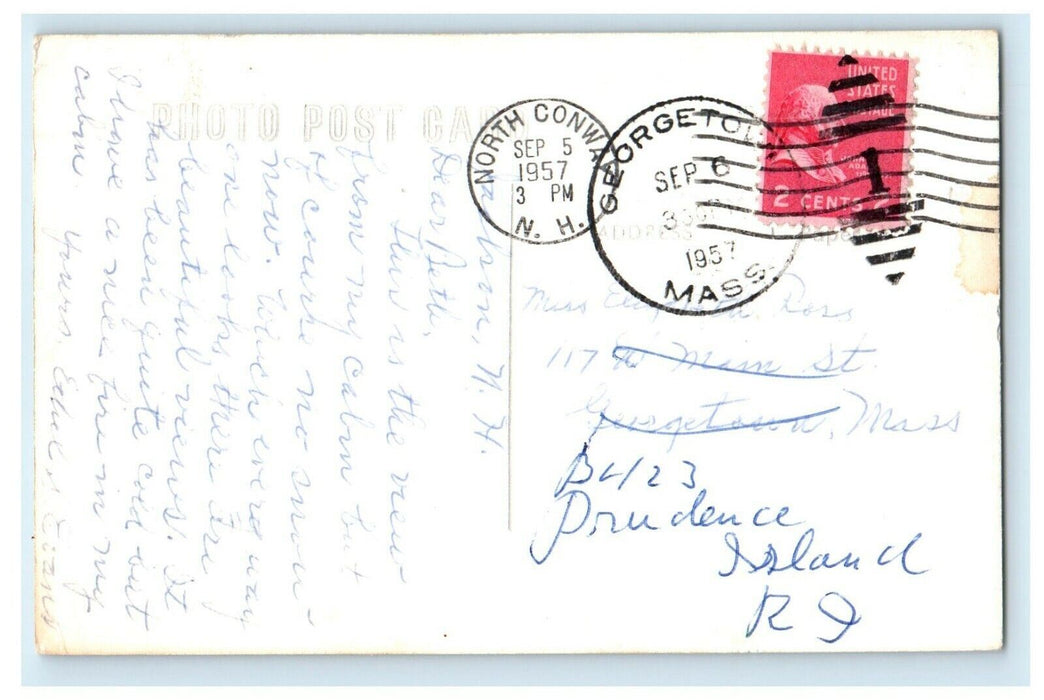 PHOTO POST CARD
Intervale, N. H.
Dear Beth,
This is the view
from my cabin but
of course no snow
now. Which ever way
one looks there are
beautiful views. It
has been quite cold but
I have a nice fire in my
cabin. Yours, Edna S. Evans
NORTH CONWA
SEP 5
1957
3 PM
N. H.
GEORGETO
SEP 6
1957
MASS.
UNITED
STATES
POSTAGE
2 CENTS 2
1
ADDRESS
Miss Elizabeth Ross
117 W Main St.
Georgetown, Mass
B4123
Prudence
Island
R I